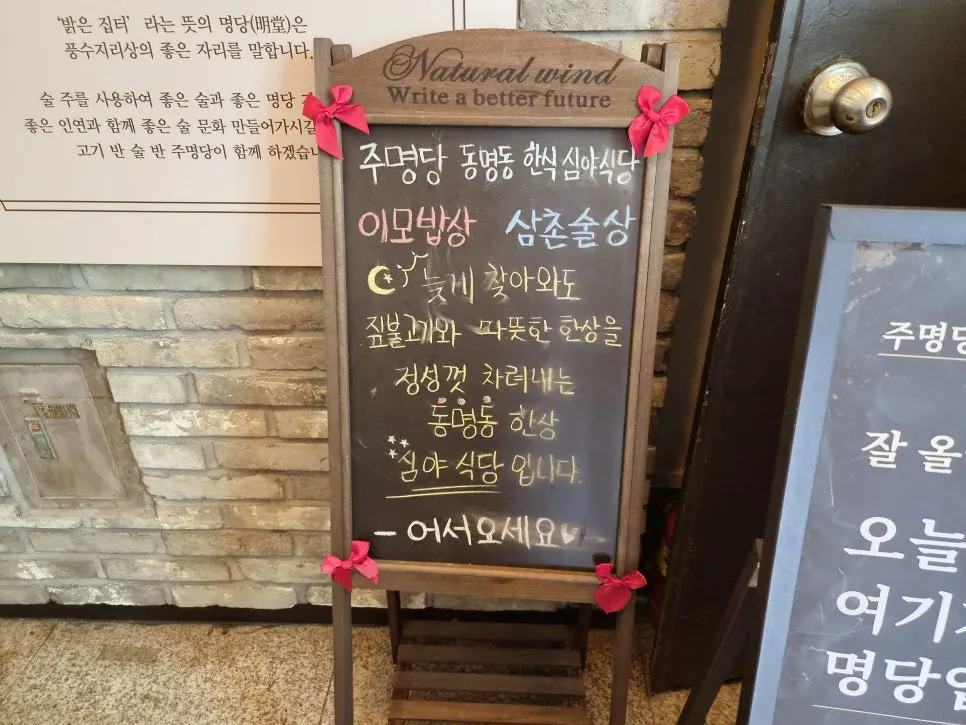 '밝은 집터' 라는 뜻의 명당(明堂)은
풍수지리상의 좋은 자리를 말합니다.
술 주를 사용하여 좋은 술과 좋은 명당
좋은 인연과 함께 좋은 술 문화 만들어가시길
고기 반 술 반 주명당이 함께 하겠습니
Natural wind
Write a better future
주명당 동명동 한식 심야식당
이모밥상 삼촌술상
늦게 찾아와도
짚불고기와 따뜻한 한상을
정성껏 차려내는
동명동 한상
심야 식당 입니다.
- 어서오세요 -
주명당
잘 올
오늘
여기
명당입